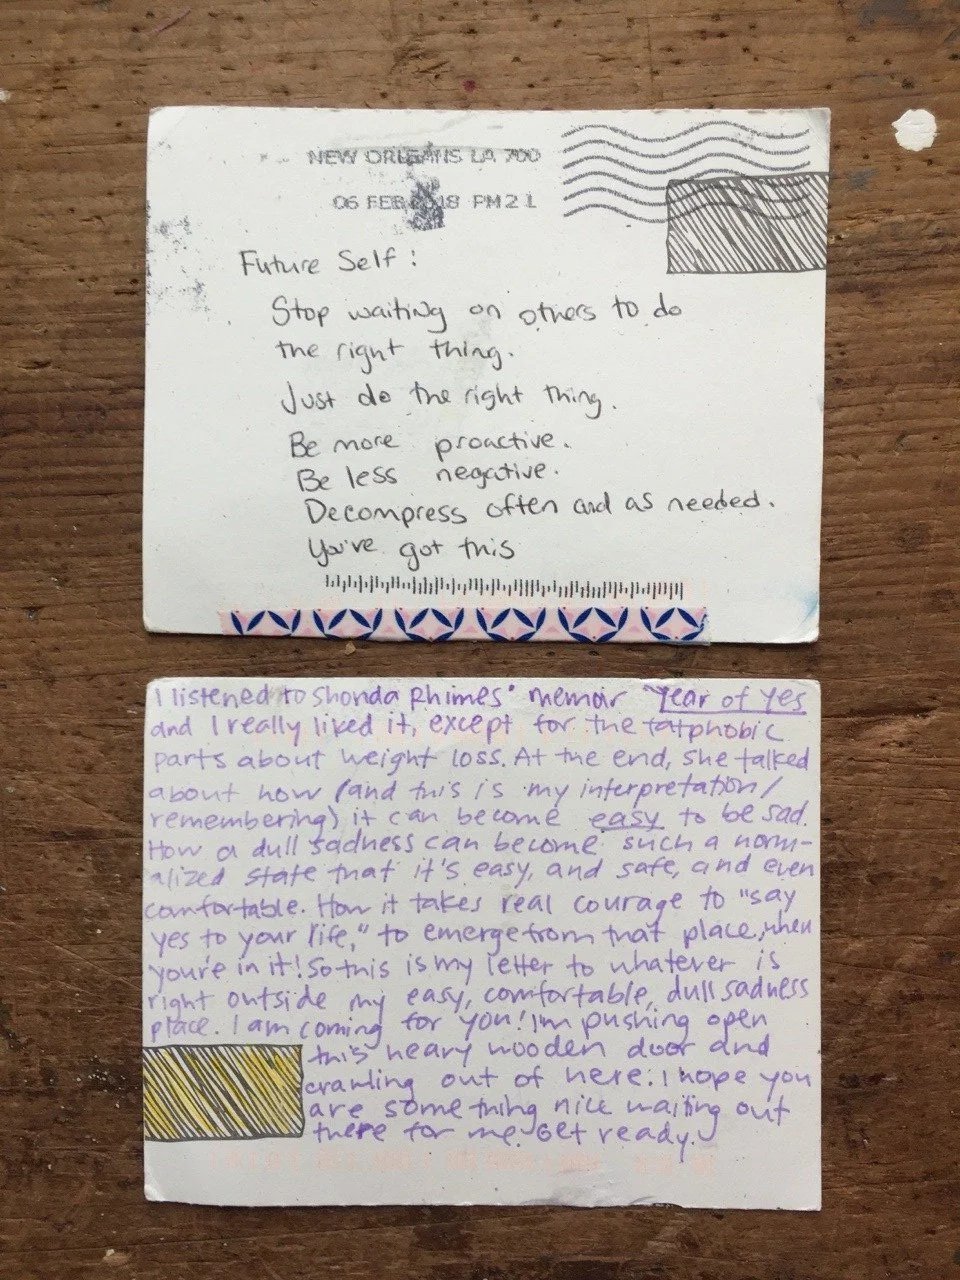 NEW ORLEANS LA 700
06 FEB 2018 PM 2 L
Future Self:
Stop waiting on others to do
the right thing.
Just do the right thing.
Be more proactive.
Be less negative.
Decompress often and as needed.
You've got this
I listened to Shonda Rhimes' memoir "Year of Yes
and I really liked it, except for the fatphobic
parts about weight loss. At the end, she talked
about how (and this is my interpretation/
remembering) it can become easy to be sad.
How a dull sadness can become such a norm-
alized state that it's easy, and safe, and even
comfortable. How it takes real courage to "say
yes to your life," to emerge from that place, when
you're in it! So this is my letter to whatever is
right outside my easy, comfortable, dull sadness
place. I am coming for you! I'm pushing open
this heavy wooden door and
crawling out of here. I hope you
are something nice waiting out
there for me. Get ready.